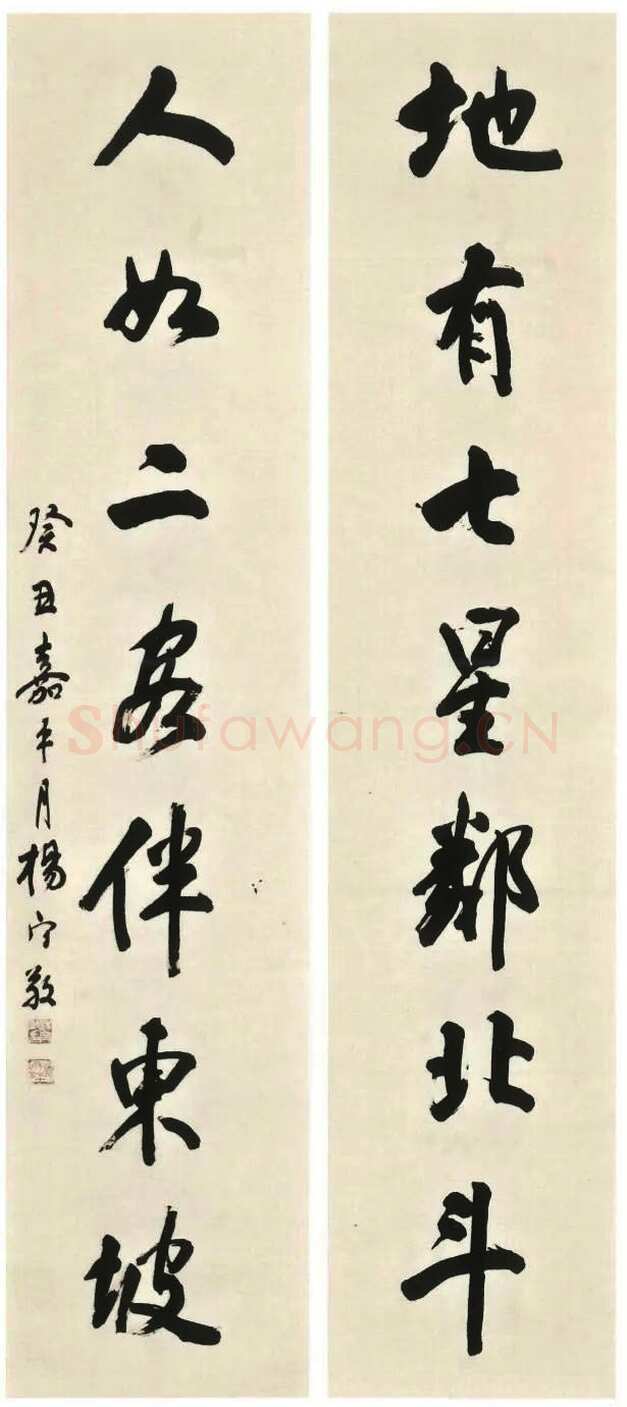 地有七星鄰北斗
人如二客伴東坡
癸丑嘉平月楊守敬
Shufawang.CN